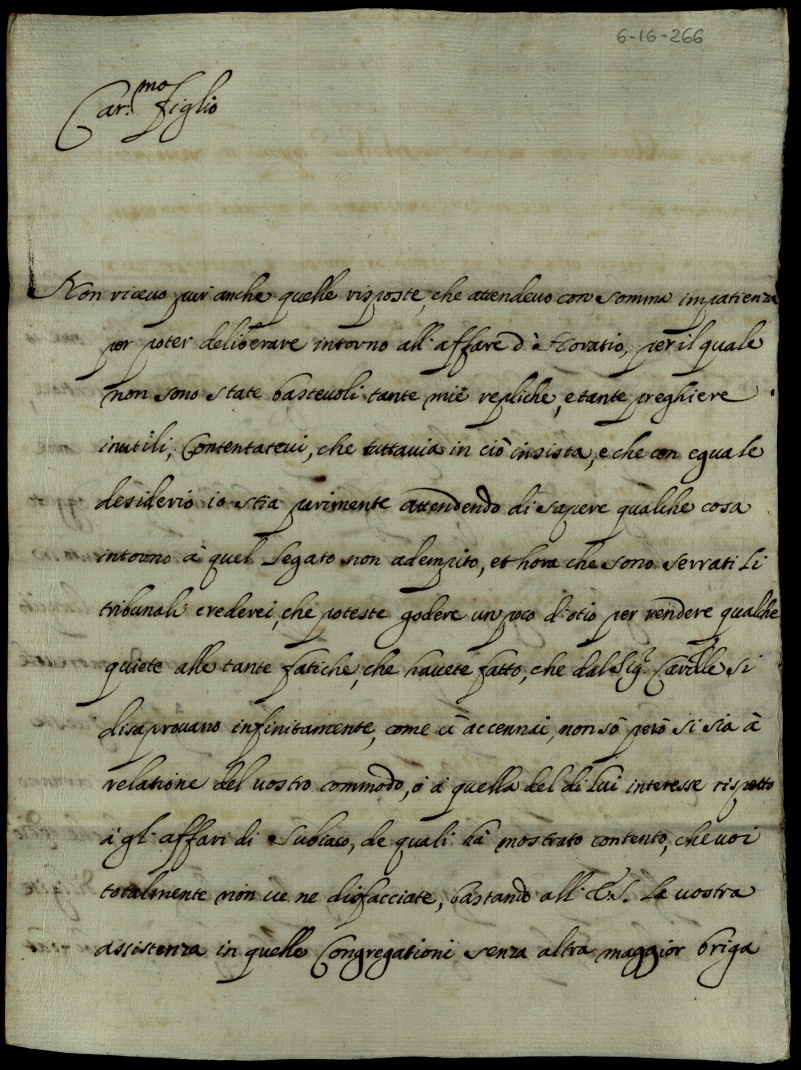 6-16-266
Car.mo figlio
Non riceuo pur anche quelle risposte, che attendeuo con somma impatienza
per poter deliberare intorno all' affare d' Horatio, per il quale
non sono state basteuoli tante mie repliche, e tante preghiere
inutili, Contentateui, che tuttauia in ciò insista, e che con eguale
desiderio io stia parimente attendendo di sapere qualche cosa
intorno à quel Legato non adempito, et hora che sono serrati li
tribunali crederei, che poteste godere un poco d' otio per rendere qualche
quiete alle tante fatiche, che hauete fatto, che dal Sig.r si
disaprouano infinitamente, come ui accennai, non sò però si sia à
relatione del uostro commodo, ò à quella del di lui interesse rispetto
à gl' affari di Subiaco, de quali hà mostrato contento, che uoi
totalmente non ue ne disfacciate, bastando all' E.S. la uostra
assistenza in quelle Congregationi senza altra maggior briga